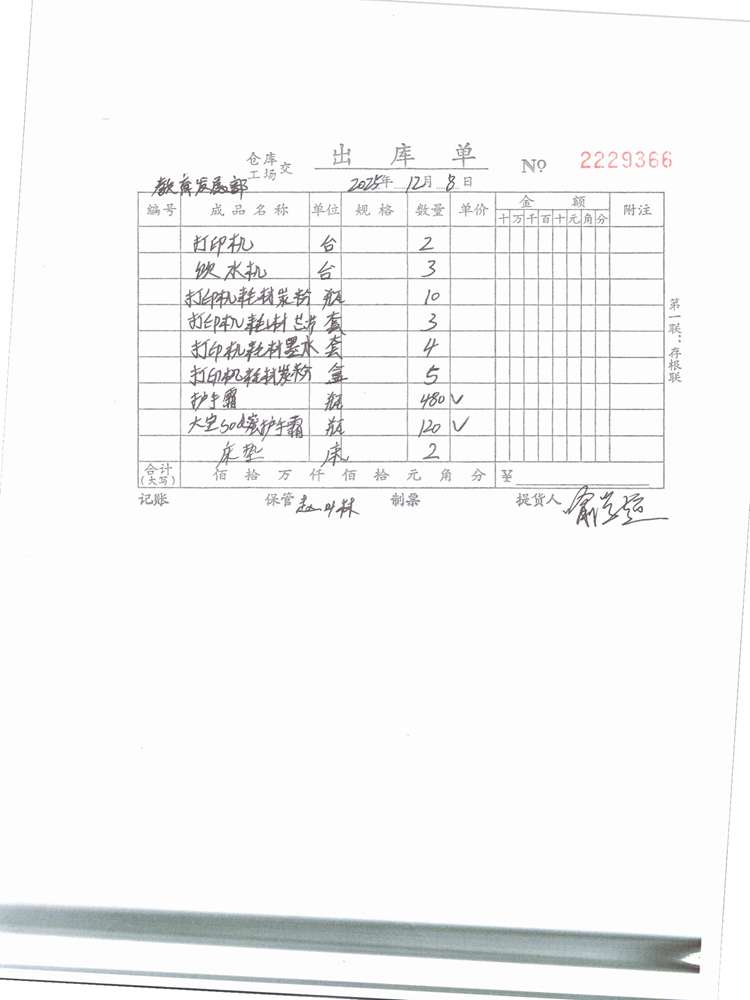 仓库
工场 交
出库单
№ 2229366
教育发展部
2025年 12月 8日
编号 成品名称 单位 规格 数量 单价 金额 附注
十万千百十元角分
打印机 台 2
饮水机 台 3
打印机耗材炭粉 瓶 10
打印机耗材芯片 套 3
打印机耗材墨水 套 4
打印机耗材炭粉 盒 5
护手霜 瓶 480 V
大宝sod蜜护手霜 瓶 120 V
床垫 床 2
合计
(大写) 佰拾万仟佰拾元角分 ¥
记账 保管 制票 提货人
第一联：存根联